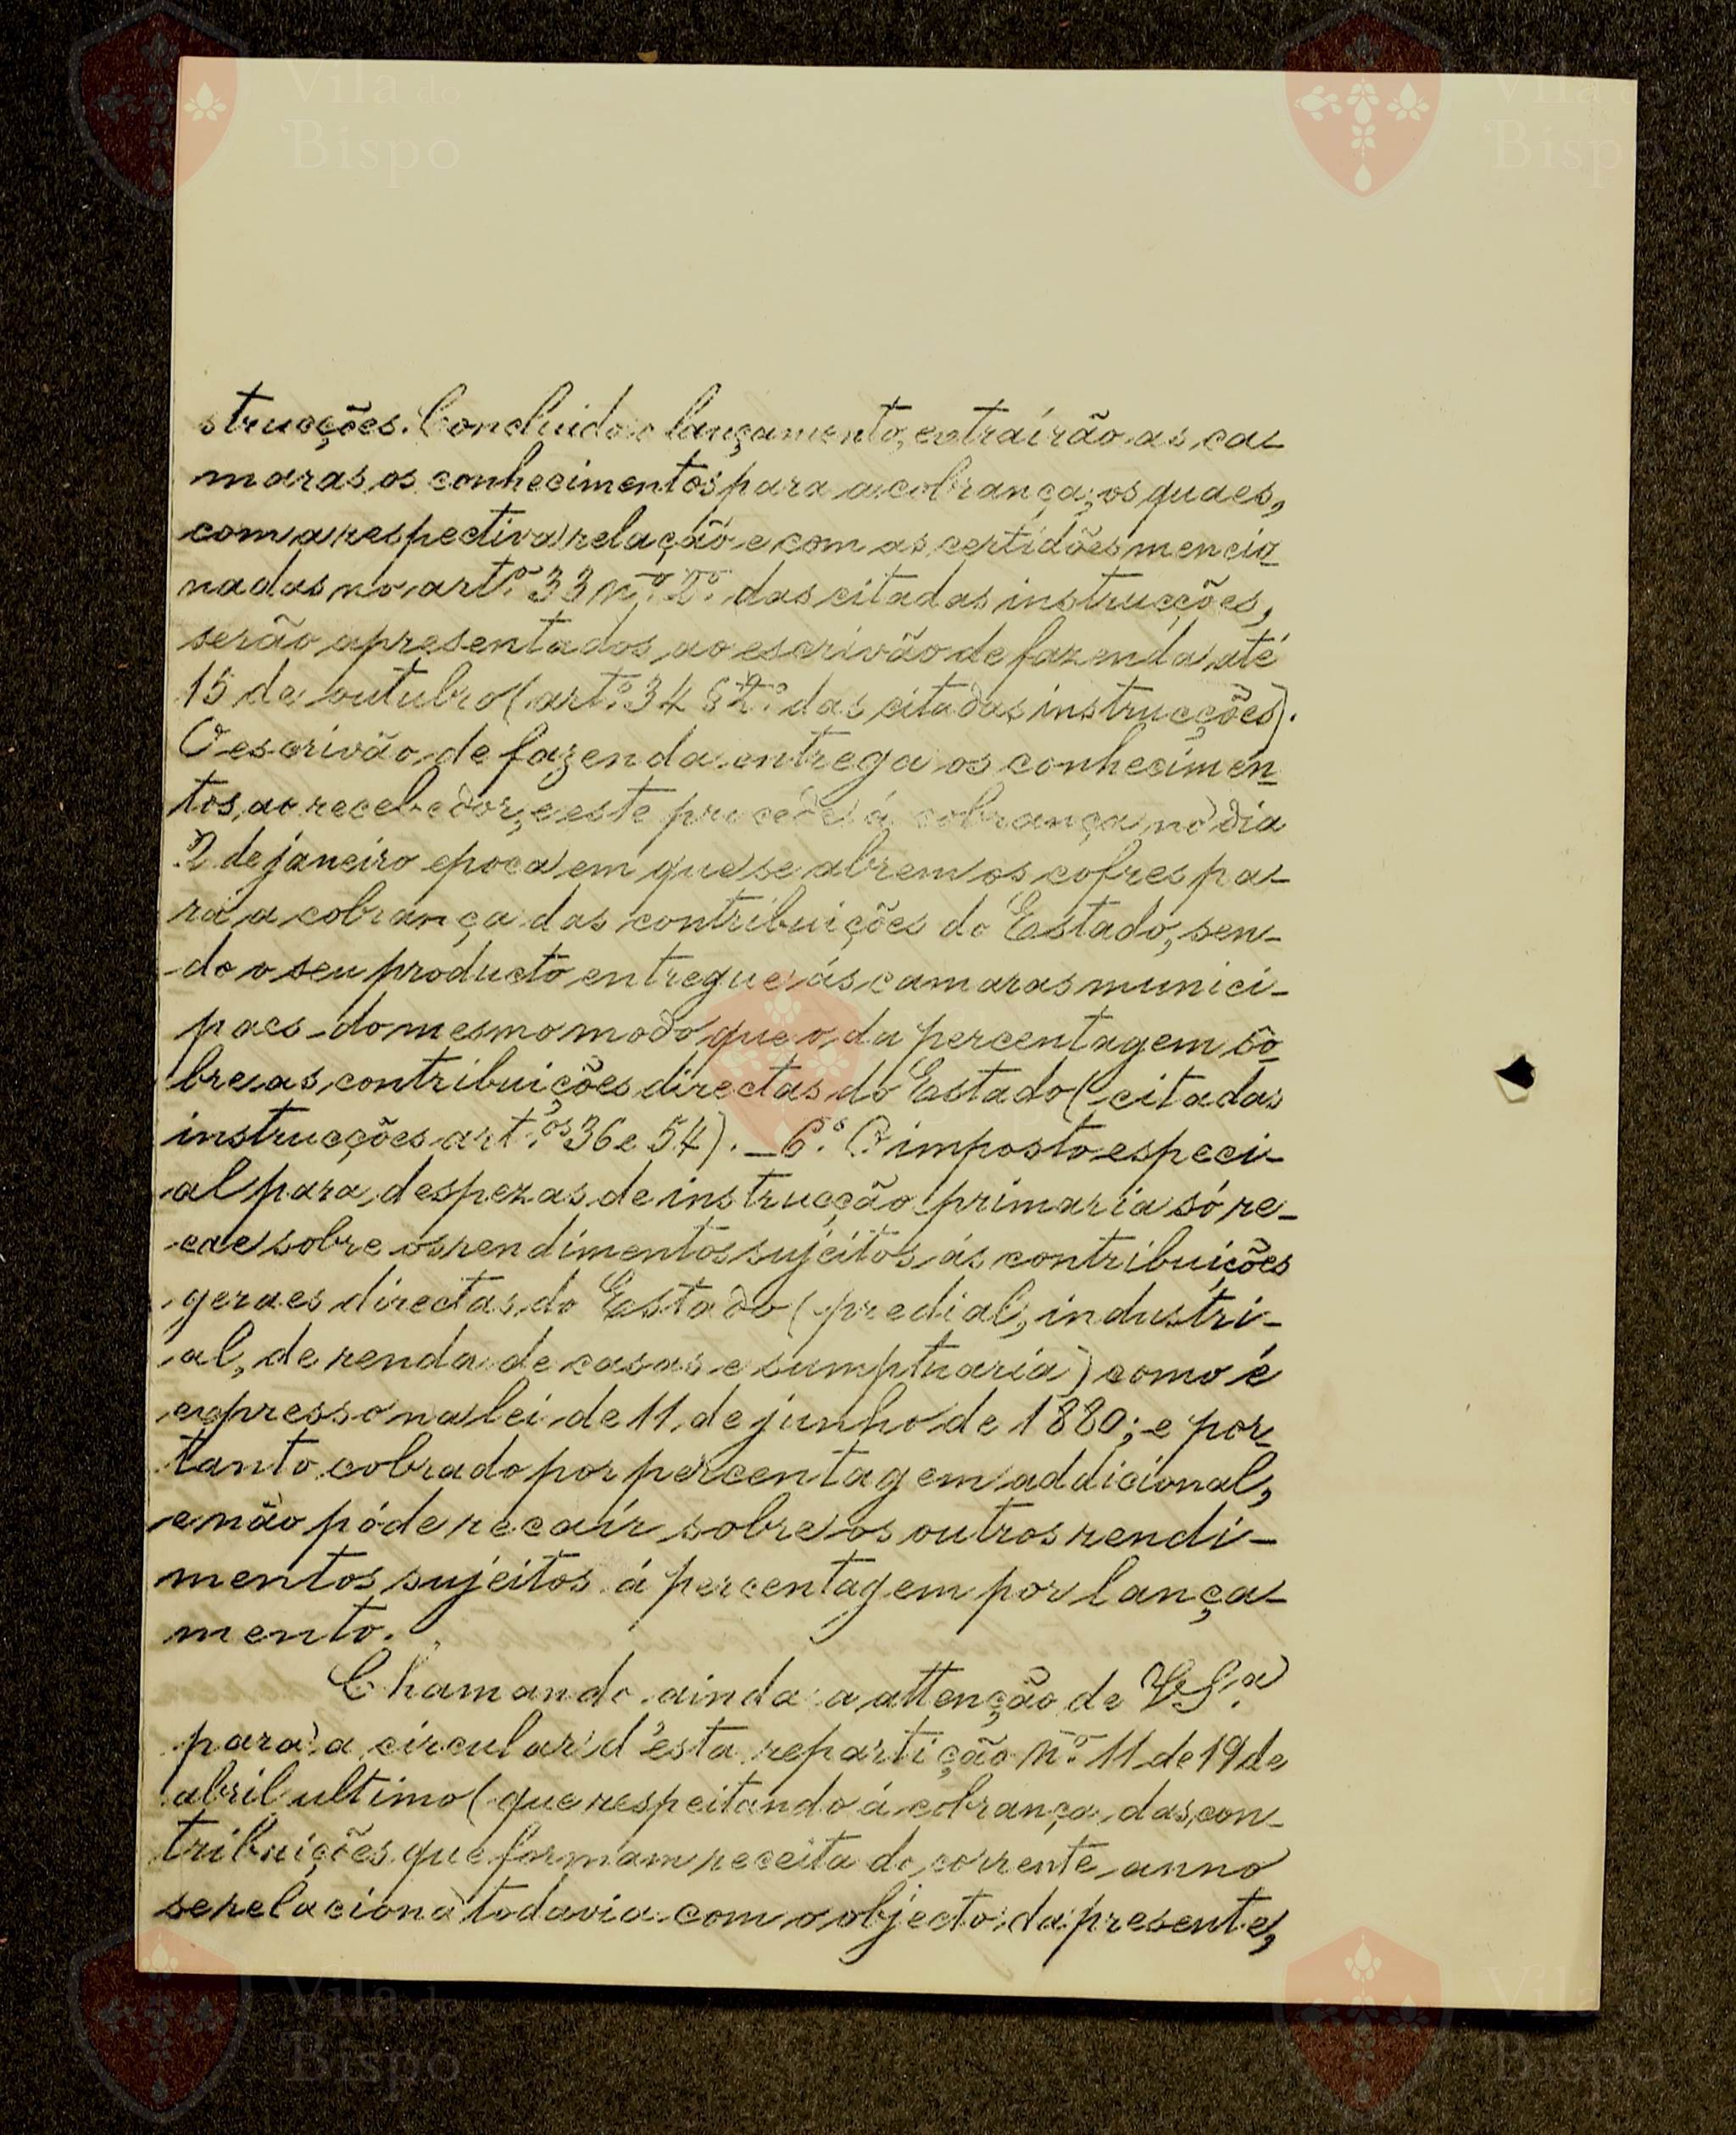 Vila do
Bispo
Vila do
Bispo
strucções. Concluido o lançamento, extraírão as ca-
maras os conhecimentos para a cobrança, os quaes,
com a respectiva relação e com as certidões mencio-
nadas no art.º 33 n.º 2.º das citadas instrucções,
serão apresentados ao escrivão de fazenda até
15 de outubro (art.º 34 § 2.º das citadas instrucções).
O escrivão de fazenda entrega os conhecimen-
tos ao recebedor, e este procede á cobrança no dia
2 de janeiro epoca em que se abrem os cofres pa-
ra a cobrança das contribuições do Estado, sen-
do o seu producto entregue ás camaras munici-
paes do mesmo modo que o da percentagem so-
bre as contribuições directas do Estado (citadas
instrucções art.os 36 e 54). — 6.º O imposto especi-
al para despezas de instrucção primaria só re-
cae sobre os rendimentos sujeitos ás contribuições
geraes directas do Estado (predial, industri-
al, de renda de casas e sumptuaria) como é
expresso na lei de 11 de junho de 1880; e por-
tanto cobrado por percentagem addicional,
e não póde recaír sobre os outros rendi-
mentos sujeitos á percentagem por lança-
mento.
Chamando ainda a attenção de V. S.ª
para a circular d'esta repartição n.º 11 de 19 de
abril ultimo (que respeitando á cobrança das con-
tribuições que formam receita do corrente anno
se relaciona todavia com o objecto da presente,
Vila do
Bispo
Vila do
Bispo